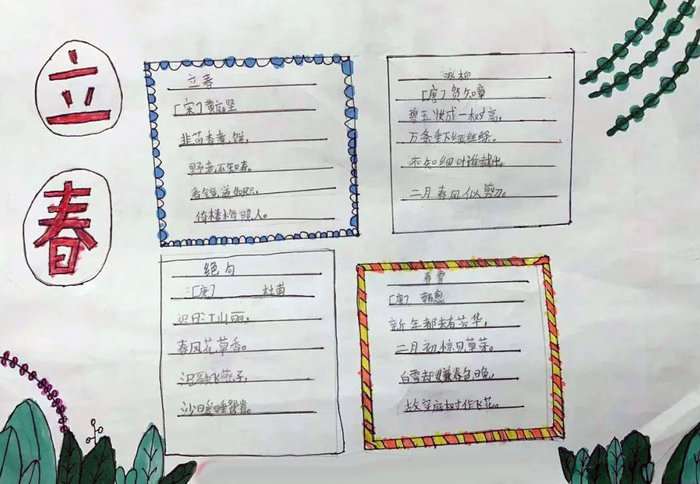 立春
立春
[宋]黄庭坚
韭苗香煮饼,
野老不知春。
看镜道如咫,
倚楼梅照人。
咏柳
[唐]贺知章
碧玉妆成一树高,
万条垂下绿丝绦。
不知细叶谁裁出,
二月春风似剪刀。
绝句
[唐] 杜甫
迟日江山丽,
春风花草香。
泥融飞燕子,
沙暖睡鸳鸯。
春雪
[唐] 韩愈
新年都未有芳华,
二月初惊见草芽。
白雪却嫌春色晚,
故穿庭树作飞花。